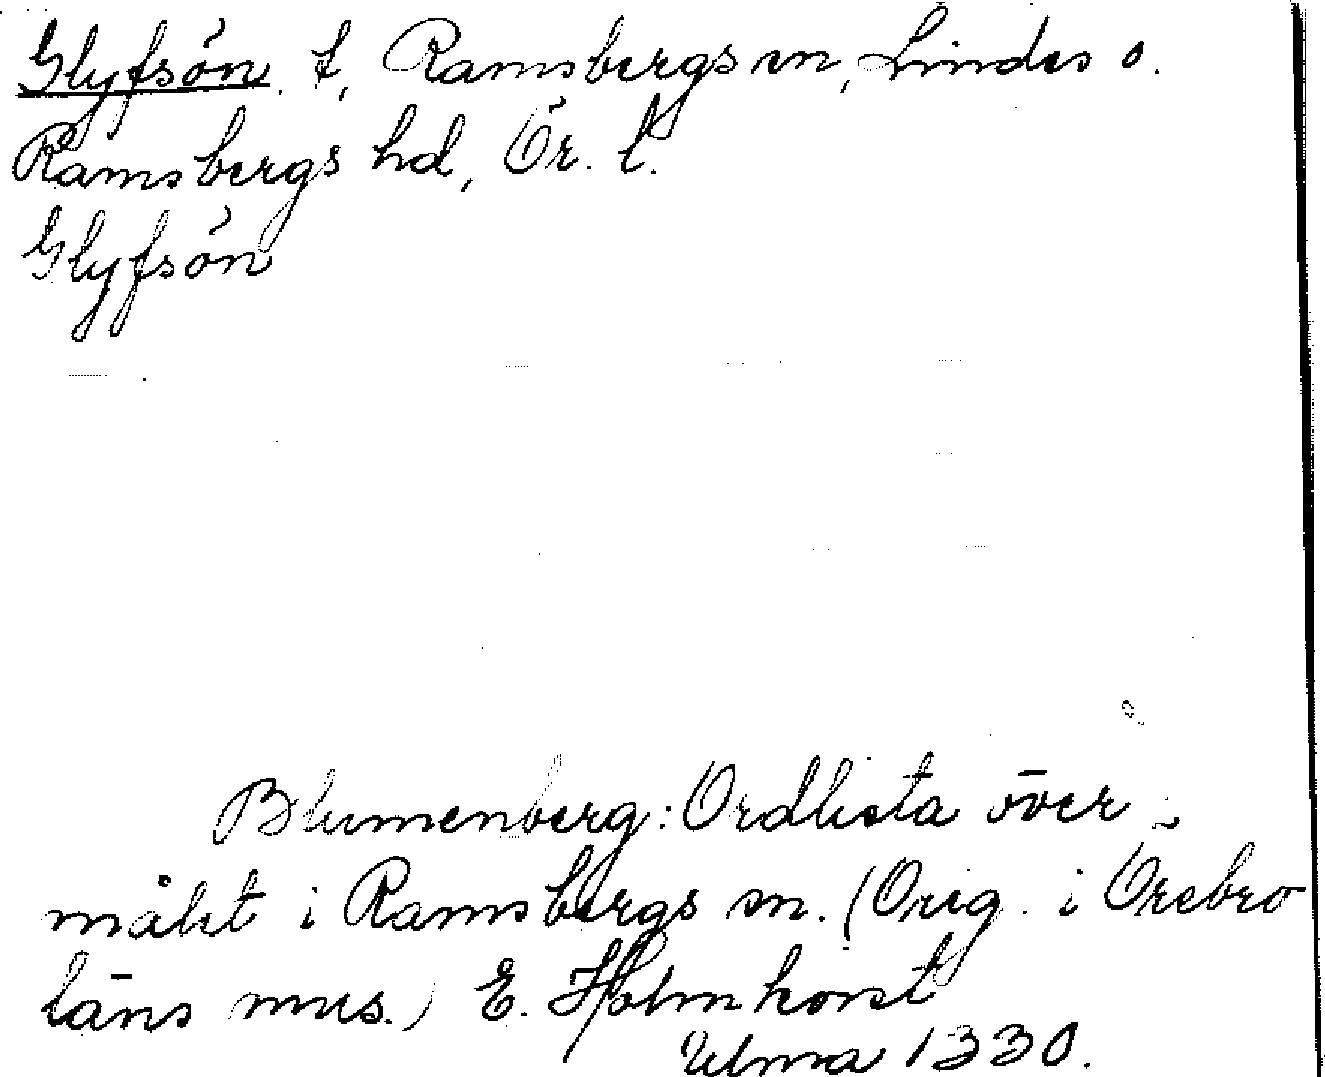 Glyfsön, t, Ramsbergs sn, Lindes o.
Ramsbergs hd, Ör. l.
Glyfsön
Blumenberg: Ordlista över
målet i Ramsbergs sn. (Orig. i Örebro
läns mus.) E. Holmkvist
Ulma 1330.